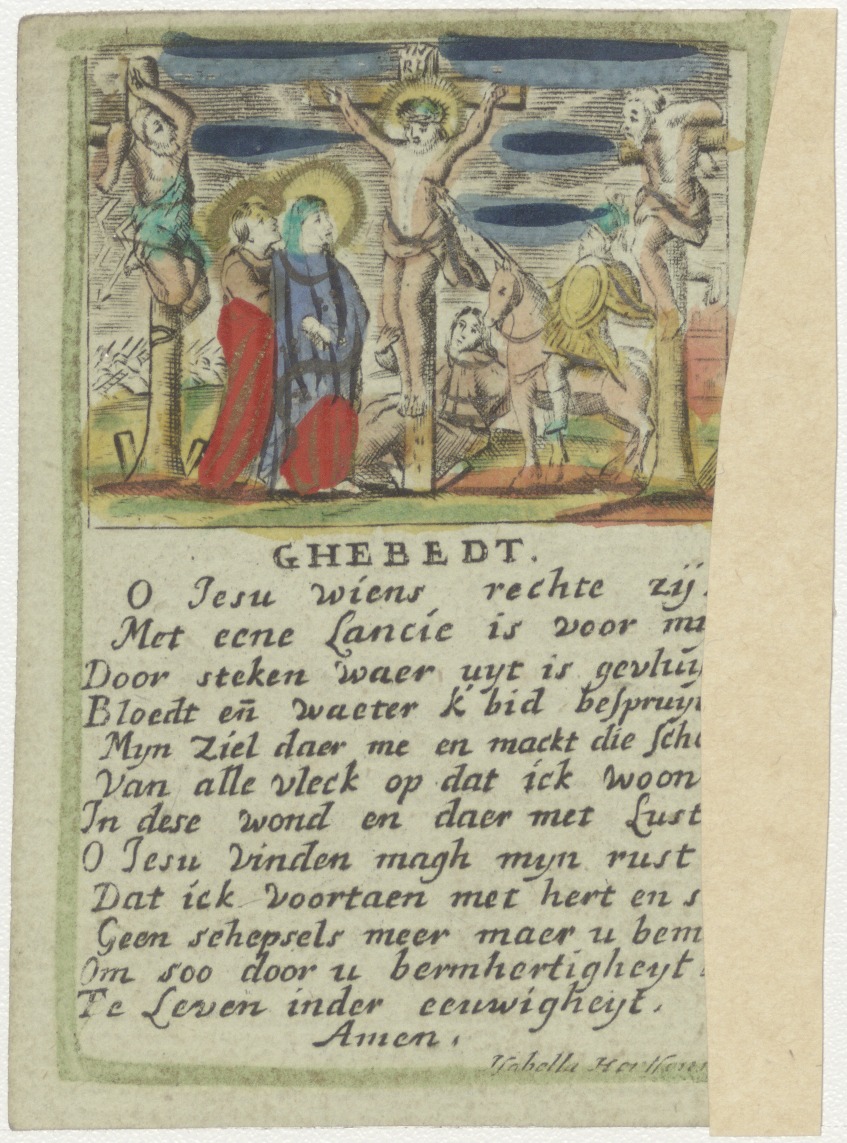 IN
RI
GHEBEDT.
O Jesu wiens rechte zij
Met eene Lancie is voor
Door steken waer uyt is
Bloedt eñ waeter k bid
Myn Ziel daer me en mackt die
Van alle vleck op dat ick woon
In dese wond en daer met Lust
O Jesu Vinden magh myn rust
Dat ick Voortaen met hert en
Geen schepsels meer maer u
Om soo door u bermhertigheyt
Te Leven inder eeuwigheyt.
Amen.